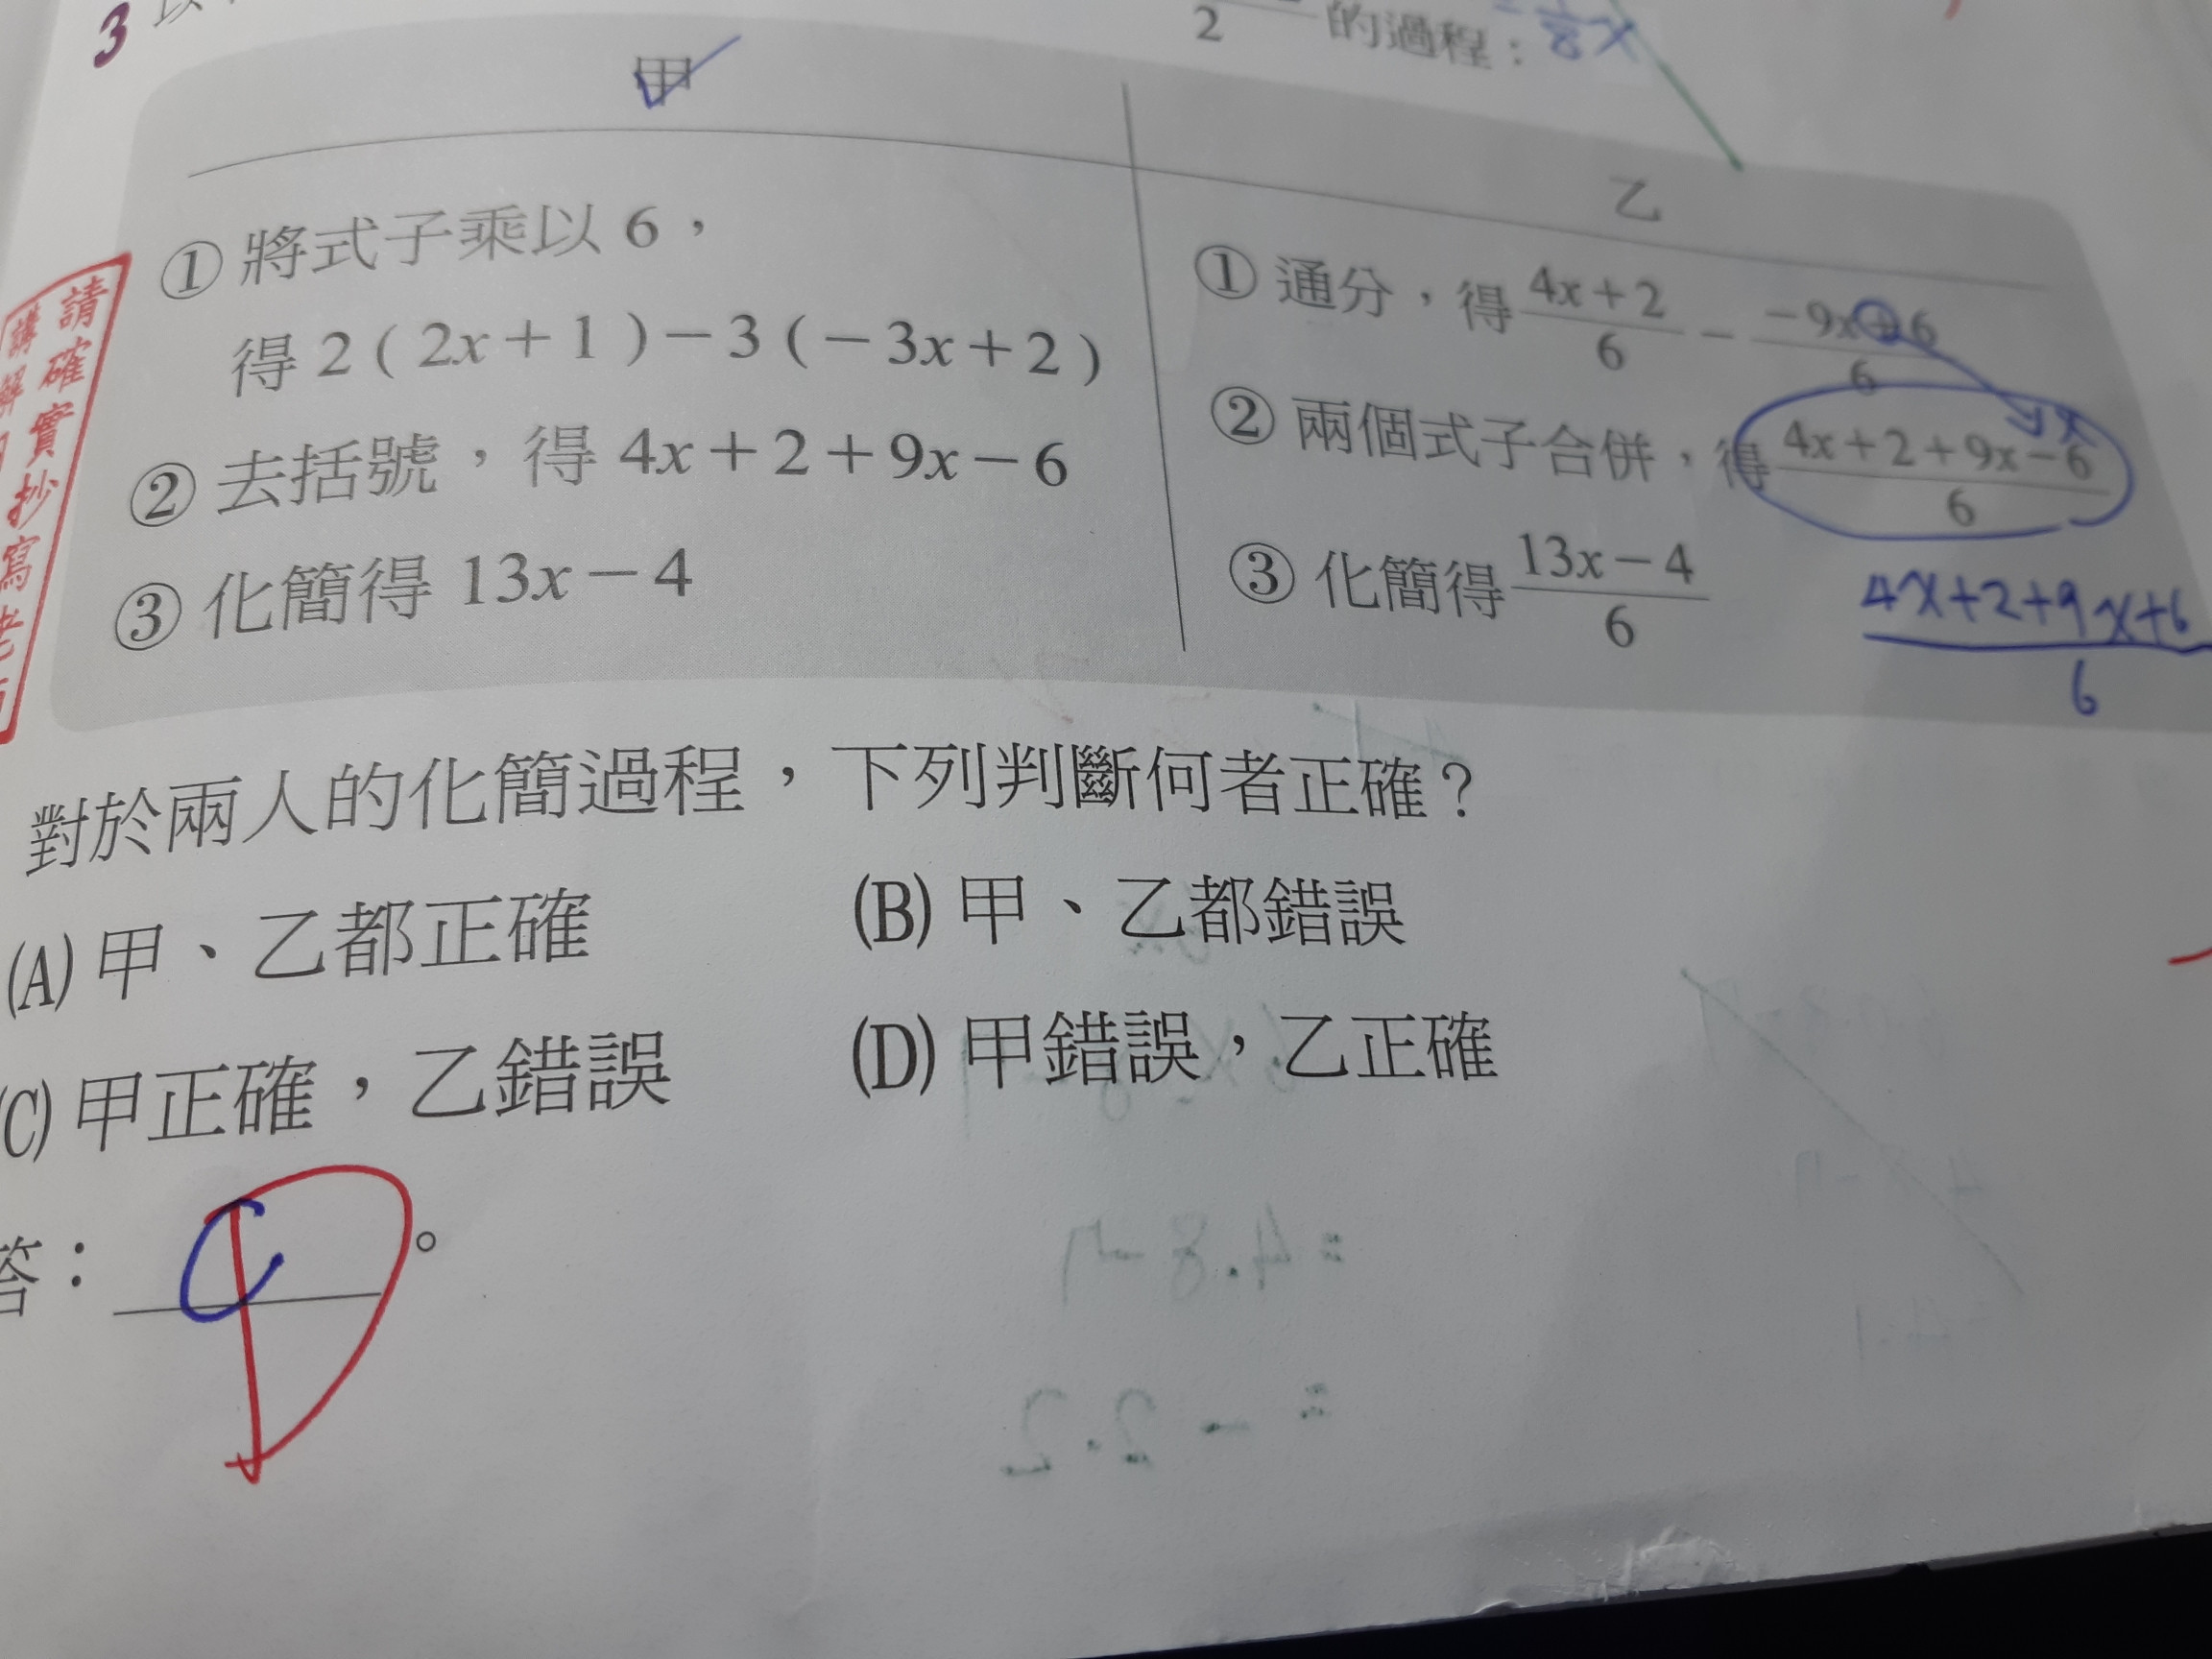 3 以
2 的過程：= 1/8 x
甲 乙
① 將式子乘以 6，
得 2 ( 2x + 1 ) − 3 ( − 3x + 2 )
② 去括號，得 4x + 2 + 9x − 6
③ 化簡得 13x − 4
① 通分，得 (4x + 2)/6 − (−9x + 6)/6
② 兩個式子合併，得 (4x + 2 + 9x − 6)/6
③ 化簡得 (13x − 4)/6
4x+2+9x+6
6
請確實抄寫老師
講解
對於兩人的化簡過程，下列判斷何者正確？
(A) 甲、乙都正確 (B) 甲、乙都錯誤
(C) 甲正確，乙錯誤 (D) 甲錯誤，乙正確
答： C D 。